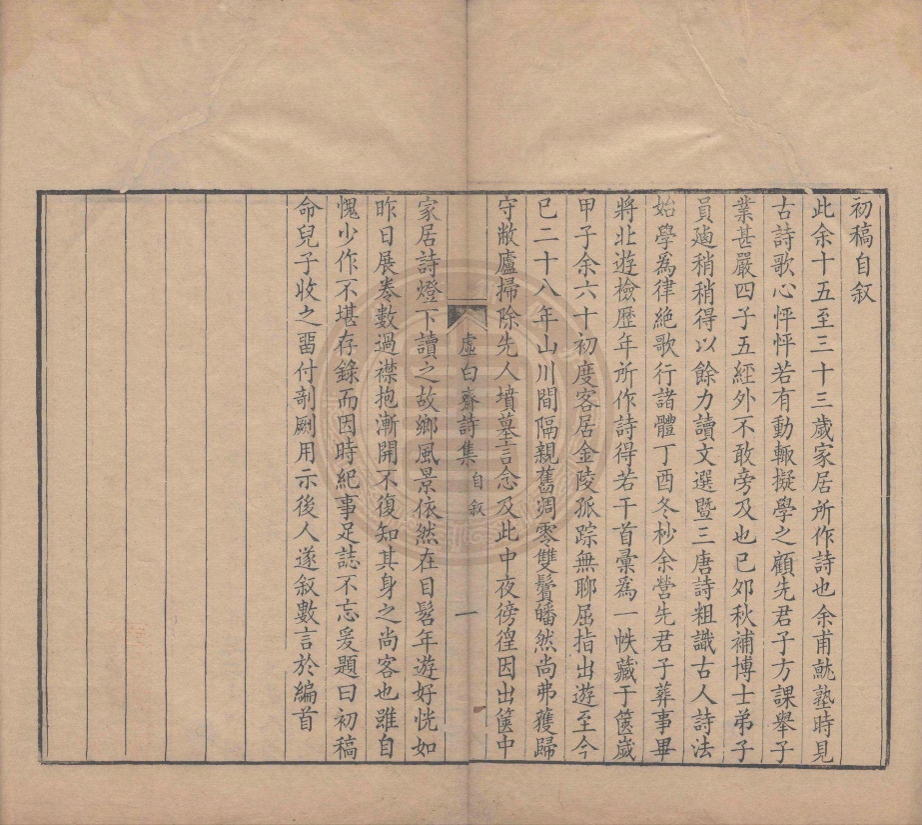 初稿自叙
此余十五至三十三歲家居所作詩也余甫就塾時見
古詩歌心怦怦若有動輙擬學之顧先君子方課舉子
業甚嚴四子五經外不敢旁及也已夘秋補博士弟子
員廼稍稍得以餘力讀文選暨三唐詩粗識古人詩法
始學爲律絶歌行諸體丁酉冬杪余營先君子葬事畢
將北遊檢歷年所作詩得若干首彚爲一帙藏于篋嵗
甲子余六十初度客居金陵孤踪無聊屈指出遊至今
已二十八年山川間隔親舊凋零雙鬢皤然尚弗獲歸
守敝廬掃除先人墳墓言念及此中夜徬徨因出篋中
虛白齋詩集 自叙 一
家居詩燈下讀之故鄉風景依然在目髫年遊好恍如
昨日展卷數過襟抱漸開不復知其身之尚客也雖自
愧少作不堪存錄而因時紀事足誌不忘爰題曰初稿
命兒子收之畱付剞劂用示後人遂叙數言於編首